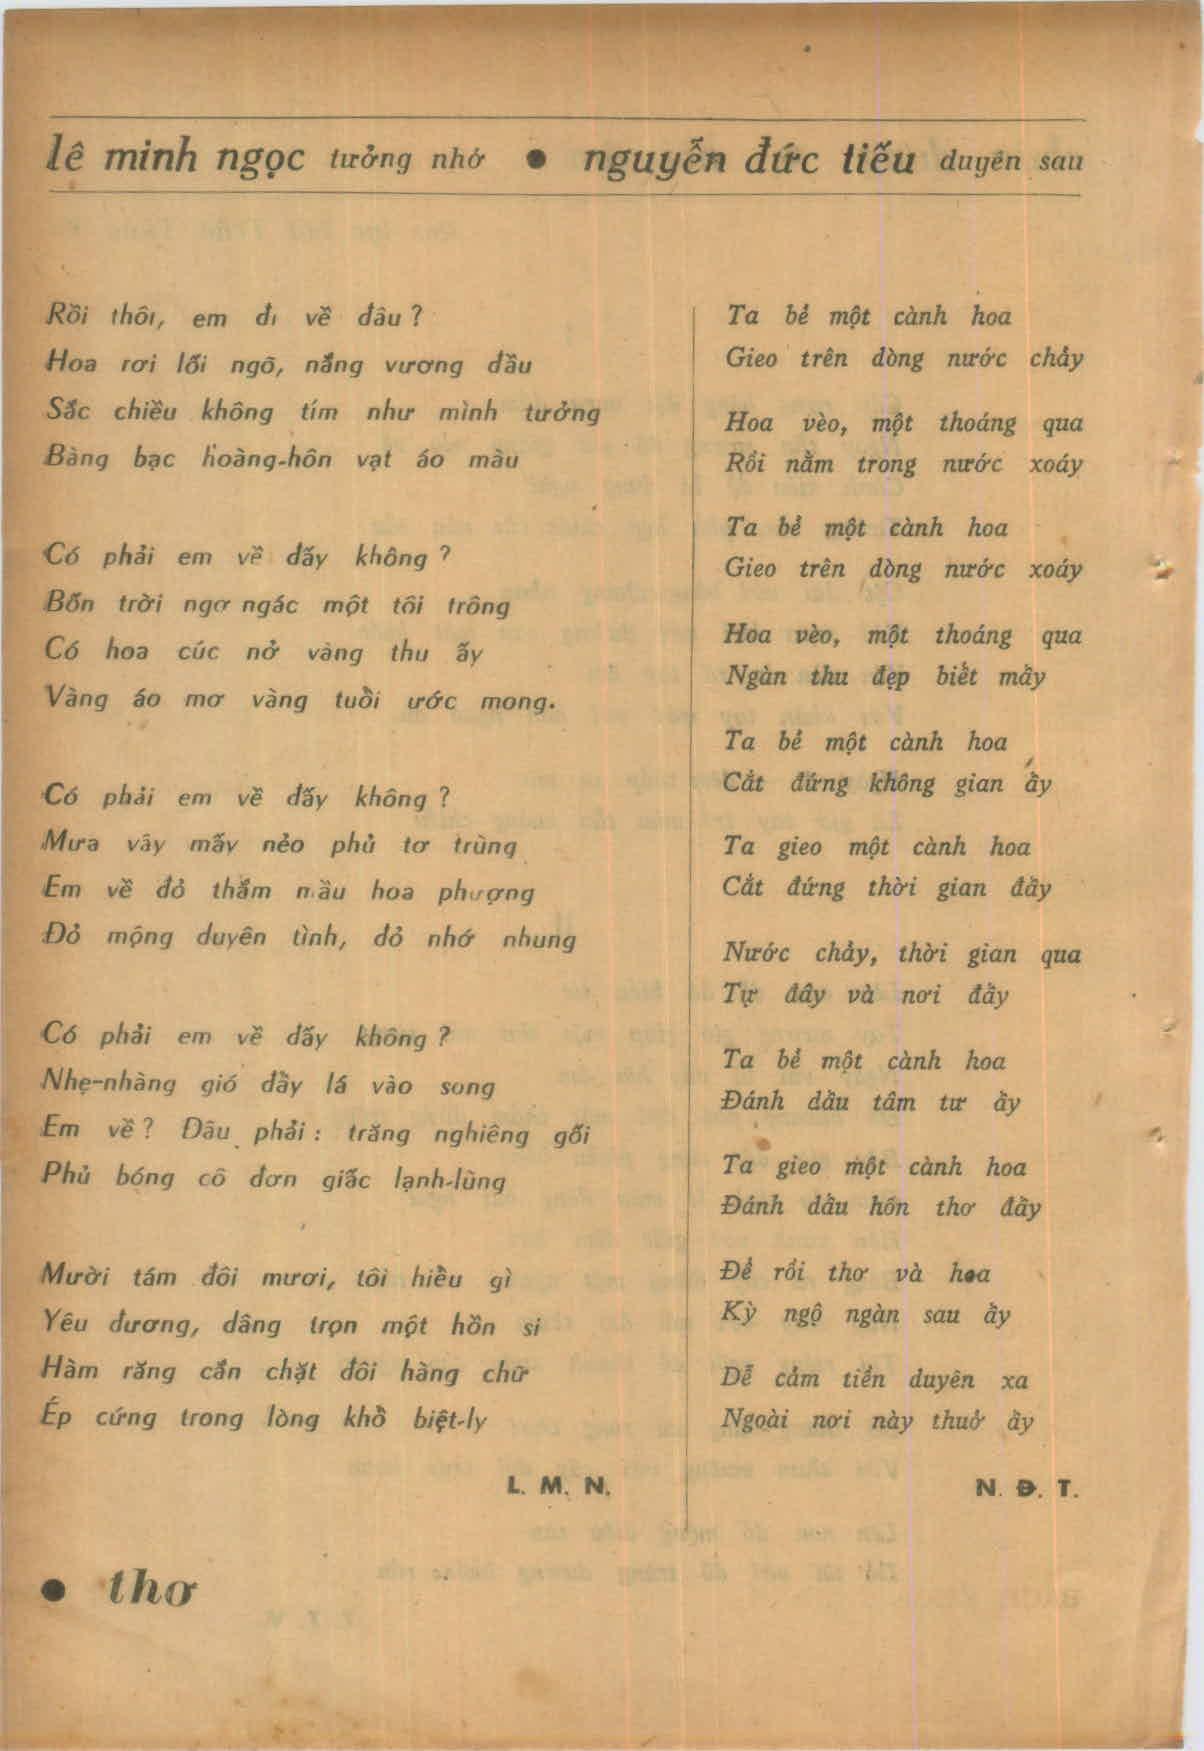 lê minh ngọc tưởng nhớ ● nguyễn đức tiếu duyên sau
Rồi thôi, em đi về đâu ?
Hoa rơi lối ngõ, nắng vương đầu
Sắc chiều không tím như mình tưởng
Bàng bạc hoàng-hôn vạt áo màu
Có phải em về đấy không ?
Bốn trời ngơ ngác một tôi trông
Có hoa cúc nở vàng thu ấy
Vàng áo mơ vàng tuổi ước mong.
Có phải em về đấy không ?
Mưa vây mấy nẻo phủ tơ trùng
Em về đỏ thắm mầu hoa phượng
Đỏ mộng duyên tình, đỏ nhớ nhung
Có phải em về đấy không ?
Nhẹ-nhàng gió đẩy lá vào song
Em về ? Đâu phải : trăng nghiêng gối
Phủ bóng cô đơn giấc lạnh-lùng
Mười tám đôi mươi, tôi hiểu gì
Yêu đương, dâng trọn một hồn si
Hàm răng cắn chặt đôi hàng chữ
Ép cứng trong lòng khổ biệt-ly
L. M. N.
Ta bẻ một cành hoa
Gieo trên dòng nước chảy
Hoa vèo, một thoáng qua
Rồi nằm trong nước xoáy
Ta bẻ một cành hoa
Gieo trên dòng nước xoáy
Hoa vèo, một thoáng qua
Ngàn thu đẹp biết mấy
Ta bẻ một cành hoa
Cắt đứng không gian ấy
Ta gieo một cành hoa
Cắt đứng thời gian đấy
Nước chảy, thời gian qua
Tự đây và nơi đấy
Ta bẻ một cành hoa
Đánh dấu tâm tư ấy
Ta gieo một cành hoa
Đánh dấu hồn thơ đấy
Để rồi thơ và hoa
Kỳ ngộ ngàn sau ấy
Dễ cảm tiền duyên xa
Ngoài nơi này thuở ấy
N. Đ. T.
● thơ